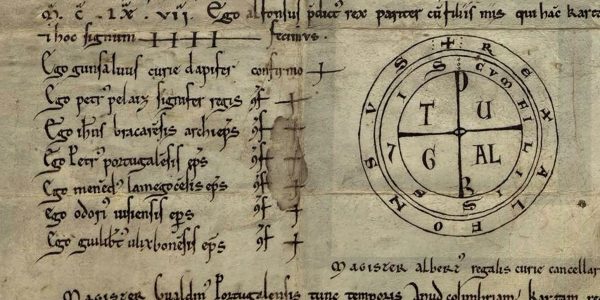 M̃. C̃. LX̃. VII. Ego alfonsus p̃dict⁹ rex pariter cũ filiis mis qui hãc karta
i hoc signum ++++ fecimus.
Ego gunsaluus curie dapifer confirmo +
Ego petr⁹ pelaiz signifer regis ꝯf +
Ego ioh̃s bracarẽsis archiep̃s ꝯf +
Ego Petr⁹ portugalẽsis ep̃s ꝯf +
Ego menẽd⁹ lamecẽsis ep̃s ꝯf +
Ego odori⁹ uisiensis ep̃s ꝯf +
Ego guilib̃t⁹ ulixbonẽsis ep̃s ꝯf +
+ REX ALFONSVS
CVM FILIIS SVIS
P
O
R
T
U
G
AL
Magister albert⁹ regalis curie cancellar
Magister Portugalensis tunc temporis Apud columbriam kartam